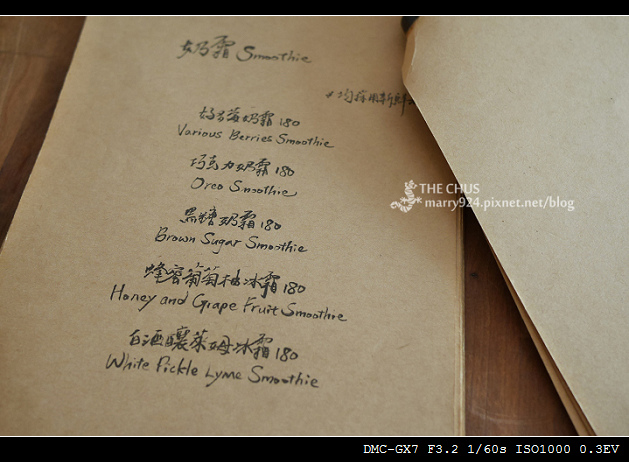 奶霜 Smoothie
均採用新鮮
莓奶霜 180
Various Berries Smoothie
巧克力奶霜 180
Oreo Smoothie
黑糖奶霜 180
Brown Sugar Smoothie
蜂蜜葡萄柚冰霜 180
Honey and Grape Fruit Smoothie
白酒釀萊姆冰霜 180
White Pickle Lyme Smoothie
THE CHUS
marry924.pixnet.net/blog
DMC-GX7 F3.2 1/60s ISO1000 0.3EV